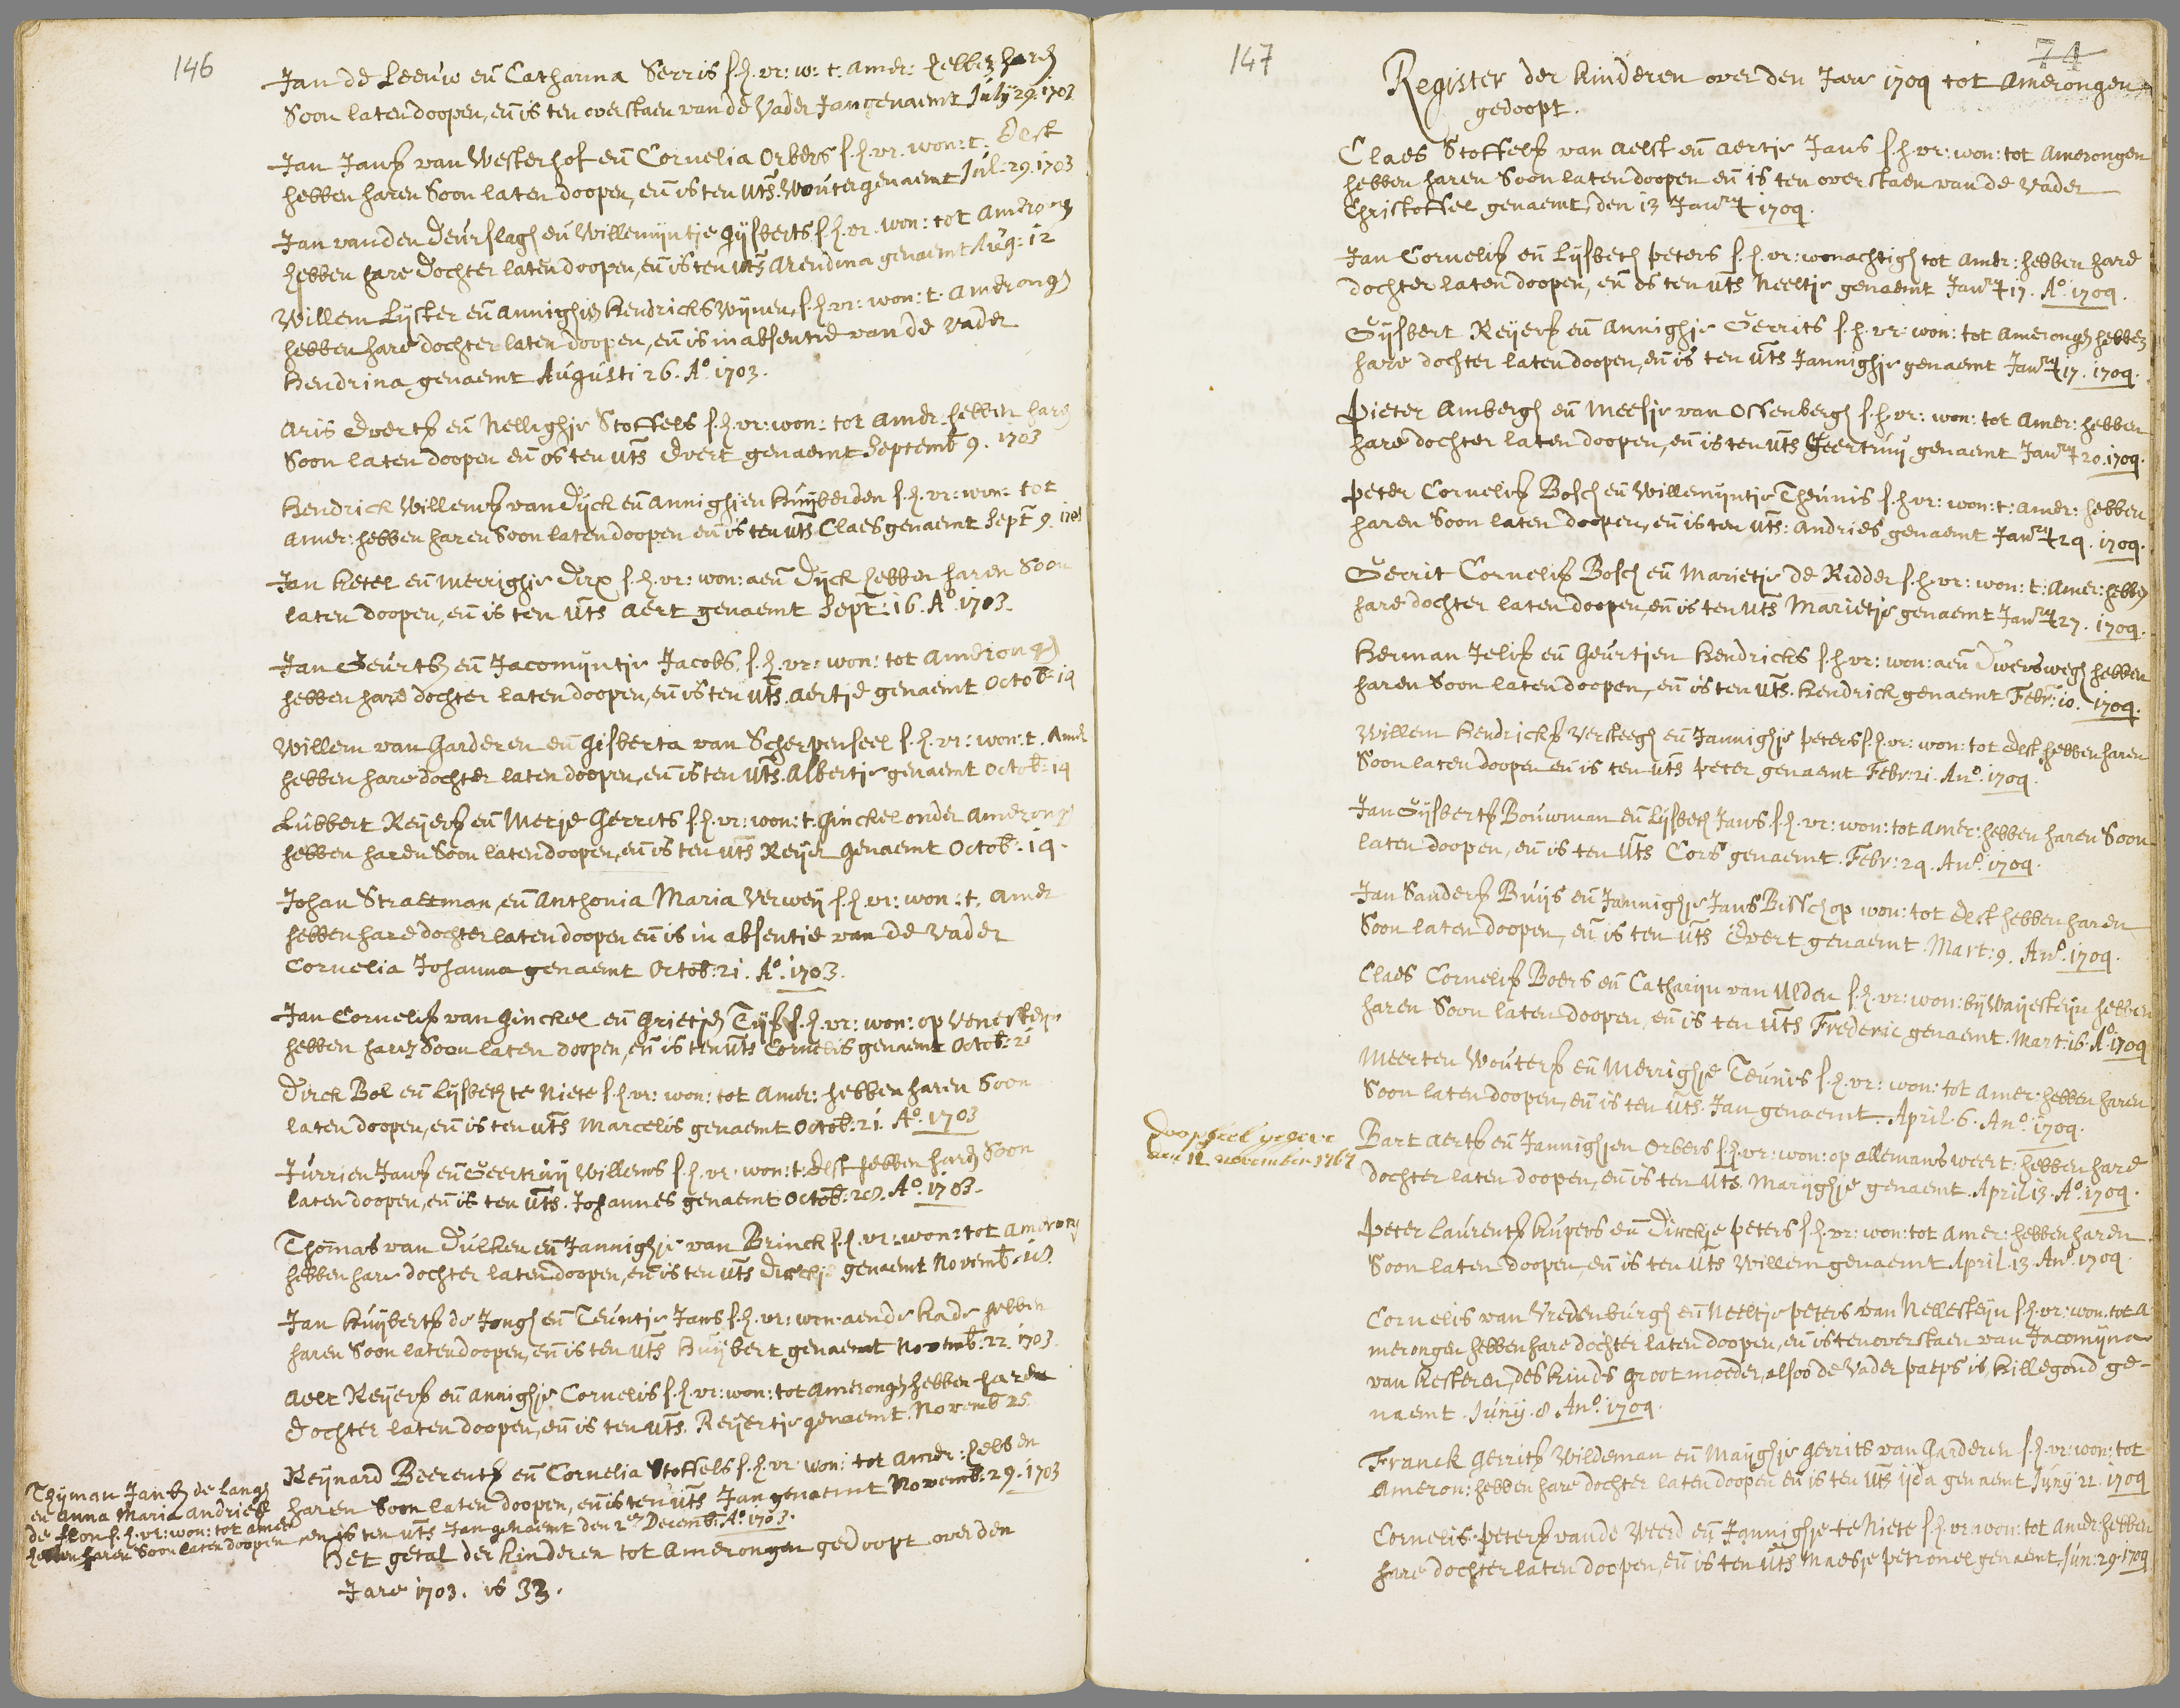 146
Jan de Leeuw en Catharina Serris s.h.vr: w: t: Amer: hebben haren
Soon laten doopen, en is ten overstaen van de Vader Jan genaemt July 29. 1703
Jan Jansz van Westerhof en Cornelia Orbers s.h.vr. won: t: Elst
hebben haren Soon laten doopen, en is ten uts. Wouter genaemt Jul. 29. 1703
Jan vanden Deurslagh en Willemijntje Gijsberts s.h.vr. won: tot Amerong
hebben hare Dochter laten doopen, en is ten uts Arendina genaemt Aug: 12
Willem Lijster en Annighje Hendricks Wijnen, s.h.vr: won: t. Amerongh
hebben hare dochter laten doopen, en is in absentie van de Vader
Hendrina genaemt Augusti 26. Ao. 1703.
Aris Evertsz en Nellighje Stoffels s.h.vr: won: tot Amer. hebben haren
Soon laten doopen en is ten uts Evert genaemt Septemb 9. 1703
Hendrick Willemsz van Dijck en Annighjen Huijberden s.h.vr: won: tot
Amer: hebben haren Soon laten doopen en is ten uts Claes genaemt Sept 9. 1703
Jan Ketel en Merrighje Dirx s.h.vr: won: aen Dijck hebben haren Soon
laten doopen, en is ten uts Aert genaemt Sept: 16. Ao. 1703.
Jan Geurtsz en Jacomijntje Jacobs, s.h.vr: won: tot Amerongh
hebben hare dochter laten doopen, en is ten uts. Aertje genaemt Octob: 14
Willem van Garderen en Gisberta van Scherpenseel s.h.vr: won: t. Amer
hebben hare dochter laten doopen, en is ten uts. Albertje genaemt Octob: 14
Lubbert Reijersz en Metje Gerrits s.h.vr: won: t. Ginckel onder Amerong
hebben haren Soon laten doopen, en is ten uts Reijer genaemt Octob. 14.
Johan Straetman, en Anthonia Maria Verweij s.h.vr: won: t. Amer
hebben hare dochter laten doopen en is in absentie van de Vader
Cornelia Johanna genaemt Octob: 21. Ao. 1703.
Jan Cornelisz van Ginckel en Grietje Tijsz s.h.vr: won: op
hebben haren Soon laten doopen, en is ten uts Cornelis genaemt Octob: 21
Dirck Bol en Lijsbeth te Niete s.h.vr: won: tot Amer: hebben haren Soon
laten doopen, en is ten uts Marcelis genaemt Octob: 21. Ao. 1703
Jurrien Jansz en Geertruij Willems s.h.vr. won: t: Elst hebben haren Soon
laten doopen, en is ten uts. Johannes genaemt Octob: 28. Ao. 1703.
Thomas van Dulken en Jannighje van Brinck s.h.vr: won: tot Amerong
hebben hare dochter laten doopen, en is ten uts Dirckje genaemt Novemb. 18.
Jan Huijbertsz de Jongh en Teuntje Jans s.h.vr: won: aen de Kade hebben
haren Soon laten doopen, en is ten uts Huijbert genaemt Novemb: 22. 1703
Aelt Reijersz en Annighje Cornelis s.h.vr: won: tot Amerongh hebben haren
Dochter laten doopen, en is ten uts. Reijertje genaemt. Novemb 25
Reijnard Beerentsz en Cornelia Stoffels s.h.vr. won: tot Amer: hebben
haren Soon laten doopen, en is ten uts Jan genaemt Novemb. 29. 1703
Thijman Jansz de Langh
en Anna Maria Andriesz
de Kron s.h.vr: won: tot Amer
hebben haren Soon laten doopen en is ten uts Jan genaemt den 2en Decemb: Ao. 1703.
Het getal der kinderen tot Amerongen gedoopt over den
Jare 1703. is 33.
147
74
Register der kinderen over den Jare 1704 tot Amerongen
gedoopt.
Claes Stoffelsz van Aelst en Aertje Jans s.h.vr: won: tot Amerongen
hebben haren Soon laten doopen en is ten overstaen van de Vader
Christoffel genaemt, den 13 Janry 1704.
Jan Cornelisz en Lijsbeth Peters s.h.vr: wonachtigh tot Amer: hebben hare
dochter laten doopen, en is ten uts Neeltje genaemt Janry 17. Ao. 1704.
Gijsbert Reijersz en Annighje Gerrits s.h.vr: won: tot Amerongh hebben
hare dochter laten doopen, en is ten uts Jannighje genaemt Janry 17. 1704.
Pieter Ambergh en Meesje van Ossenbergh s.h.vr: won: tot Amer: hebben
hare dochter laten doopen, en is ten uts Geertruij genaemt Janry 20. 1704.
Peter Cornelisz Bosch en Willemijntje Theunis s.h.vr: won: t: Amer: hebben
haren Soon laten doopen, en is ten uts: Andries genaemt Janry 24. 1704.
Gerrit Cornelisz Bosch en Marietje de Ridder s.h.vr: won: t: Amer: hebben
hare dochter laten doopen, en is ten uts Marietje genaemt Janry 27. 1704.
Herman Jelisz en Geurtjen Hendricks s.h.vr: won: aen Dwersweg hebben
haren Soon laten doopen, en is ten uts. Hendrick genaemt Febr: 10. 1704.
Willem Hendricksz Versteegh en Jannighje Peters s.h.vr: won: tot Elst hebben haren
Soon laten doopen en is ten uts Peter genaemt Febr: 21. Ano. 1704.
Jan Gijsbertsz Bouwman en Lijsbeth Jans s.h.vr: won: tot Amer: hebben haren Soon
laten doopen, en is ten uts Cors genaemt. Febr: 24. Ano. 1704.
Jan Sandersz Buijs en Jannighje Jans Bisschop won: tot Elst hebben haren
Soon laten doopen, en is ten uts Evert genaemt. Mart: 9. Ano. 1704.
Claes Cornelisz Boers en Catharijn van Ulden s.h.vr: won: bij Waijesteijn hebben
haren Soon laten doopen, en is ten uts Frederic genaemt. Mart: 16. Ao. 1704
Meerten Woutersz en Merrighje Teunis s.h.vr: won: tot Amer: hebben haren
Soon laten doopen, en is ten uts. Jan genaemt. April. 6. Ano. 1704.
Doopseel gegeve
den 12 november 1767
Bart Aertsz en Jannighjen Orbers s.h.vr: won: op Allemansweert: hebben hare
dochter laten doopen, en is ten uts. Marijghje genaemt. April 13. Ao. 1704.
Peter Laurentsz Kupers en Dirckje Peters s.h.vr: won: tot Amer: hebben haren
Soon laten doopen, en is ten uts Willem genaemt April. 13. Ano. 1704.
Cornelis van Vredenburgh en Neeltje Peters van Nellesteijn s.h.vr: won. tot A
merongen hebben hare dochter laten doopen, en is ten overstaen van Jacomijna
van Kesteren, des kinds Grootmoeder, alsoo de Vader paeps is, Hillegond ge-
naemt. Junij. 8 Ano. 1704.
Franck Gerritsz Wildeman en Maijghje Gerrits van Garderen s.h.vr: won: tot
Ameron: hebben hare dochter laten doopen en is ten uts Ijda genaemt Junij 22. 1704
Cornelis Petersz vande Weerd en Jannighje te Niete s.h.vr: won: tot Amer: hebben
hare dochter laten doopen, en is ten uts Maesje Petronel genaemt, Jun: 29. 1704